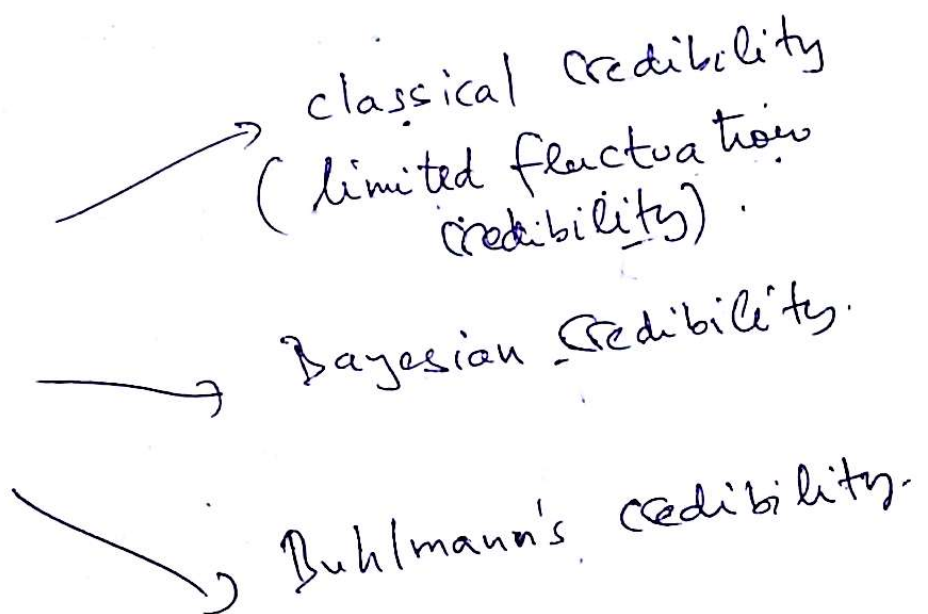 classical credibility
(limited fluctuation
credibility).
Bayesian credibility.
Buhlmann's credibility.